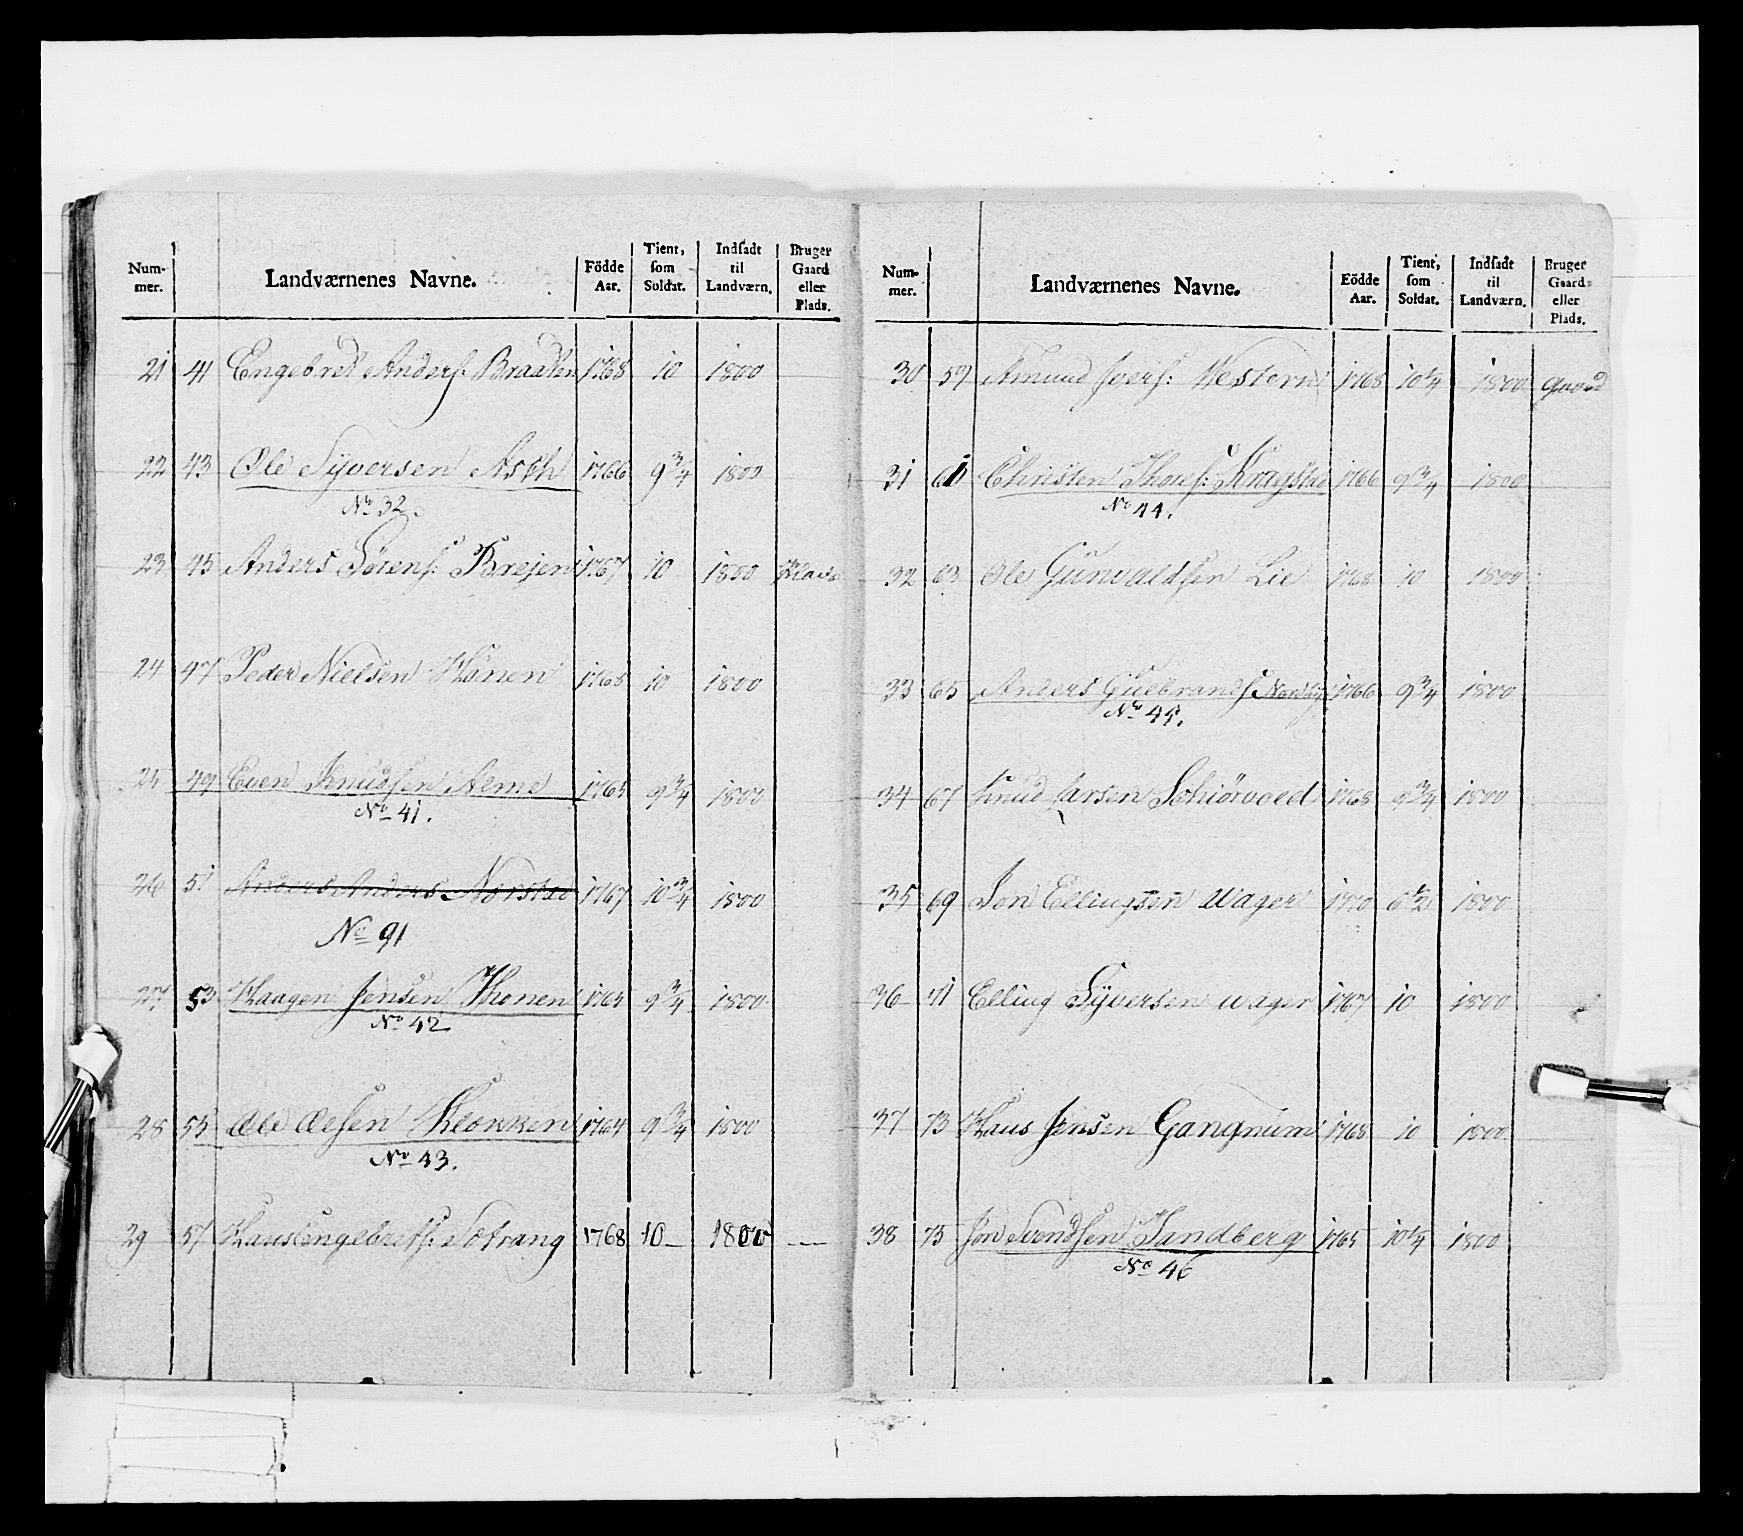 Num-mer. Landværnenes Navne. Födde Aar. Tient, som Soldat. Indsadt til Landværn. Bruger Gaard eller Plads.
21 41 Engebret Anders: Braaten 1768 10 1800
22 43 Ole Syversen Asth 1766 9 3/4 1800
No 32.
23 45 Anders Sörens: Brejen 1767 10 1800 Plads
24 47 Peder Nielsen 1768 10 1800
25 49 Even Knudsen Alme 1765 9 3/4 1800
No 41.
26 51 Anders Anders Norstad 1767 10 3/4 1800
No 91
27 53 Haagen Jensen Thonen 1765 9 3/4 1800
No 42
28 55 Ole Olsen Klokken 1764 9 3/4 1800
No 43.
29 57 Hans Engebrets: Sotrang 1768 10 1800
Num-mer. Landværnenes Navne. Födde Aar. Tient, som Soldat. Indsadt til Landværn. Bruger Gaard eller Plads.
30 59 Amund Ivers: Western 1768 10 1/4 1800 Gaard
31 61 Christen Thores: Kragstad 1766 9 3/4 1800
No 44.
32 63 Ole Gunvaldsen Lie 1768 10 1800
33 65 Anders Gulbrands 1766 9 3/4 1800
No 45.
34 67 Knud Larsen Schiörvold 1768 9 3/4 1800
35 69 Jon Ellingsen Wager 1770 6 1/2 1800
36 71 Elling Syversen Wager 1767 10 1800
37 73 Hans Jensen Gangnum 1768 10 1800
38 75 Jon Svendsen Sandberg 1765 10 1/4 1800
No 46